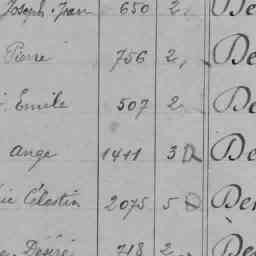 Joseph. Jean 650 2, De
Pierre 756 2, De
Emile 507 2 De
Ange 1411 3 De
Célestin 2075 5 De
Désiré 718 2 De